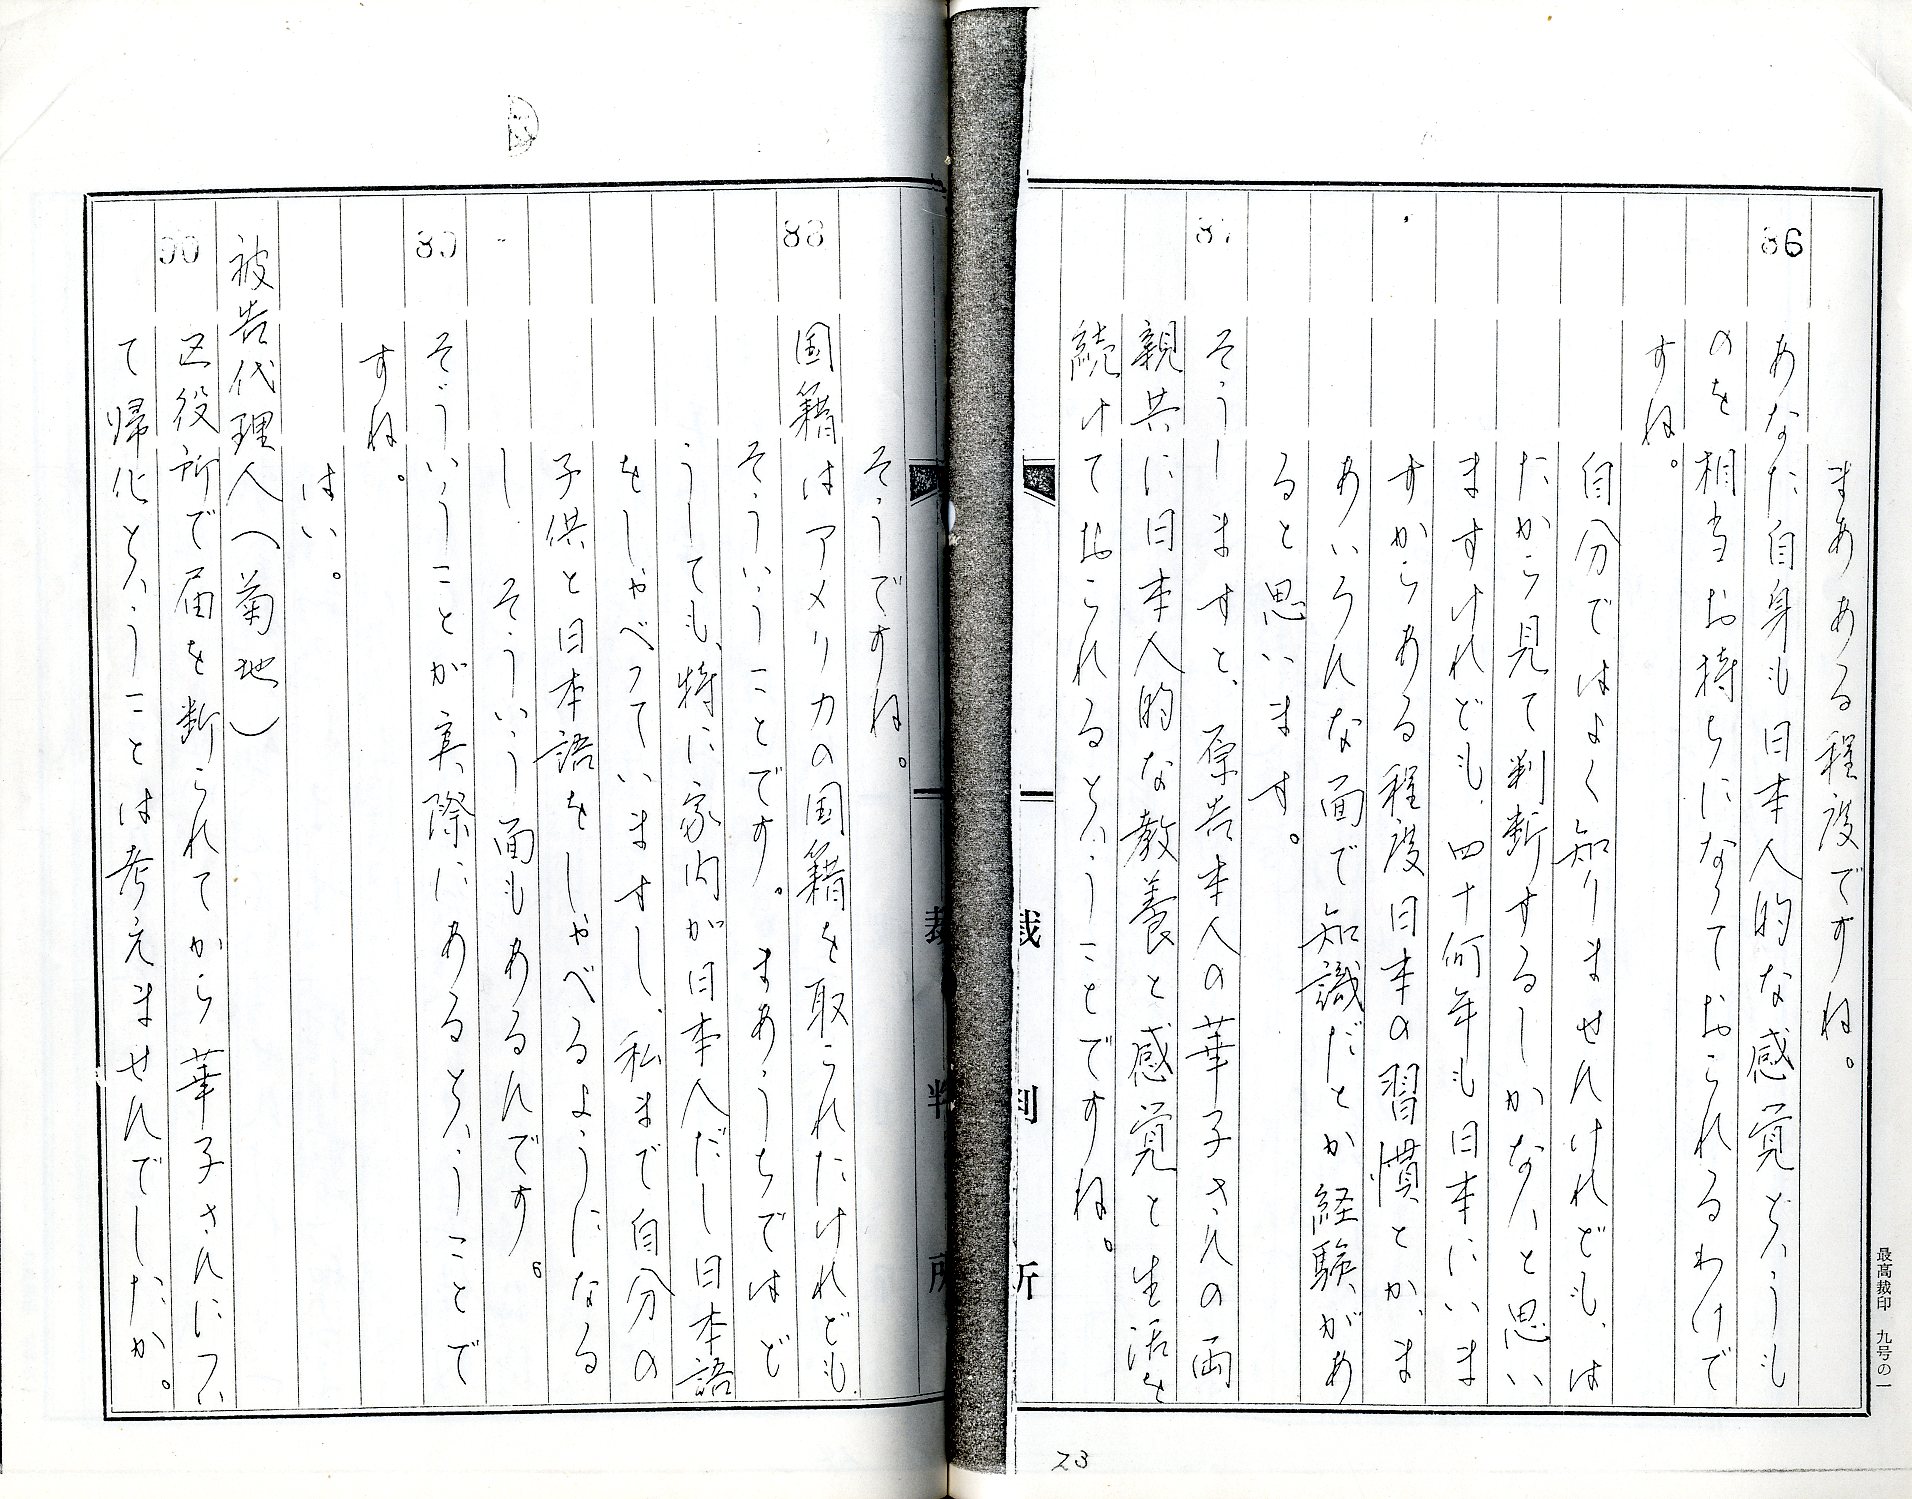 まあある程度ですね。
86
あなた自身も日本人的な感覚というも
のを相当お持ちになっておられるわけで
すね。
自分ではよく知りませんけれども、は
たから見て判断するしかないと思い
ますけれども、四十何年も日本にいま
すからある程度日本の習慣とか、ま
あいろんな面で知識だとか経験があ
ると思います。
87
そうしますと、原告本人の華子さんの両
親共に日本人的な教養と感覚と生活を
続けておられるということですね。
そうですね。
88
国籍はアメリカの国籍を取られたけれども、
そういうことです。まあうちではど
うしても、特に家内が日本人だし日本語
をしゃべっていますし、私まで自分の
子供と日本語をしゃべるようになる
し、そういう面もあるんです。
89
そういうことが実際にあるということで
すね。
はい。
被告代理人(菊地)
90
区役所で届を断られてから華子さんについ
て帰化ということは考えませんでしたか。
裁判所
最高裁印 九号の一
23